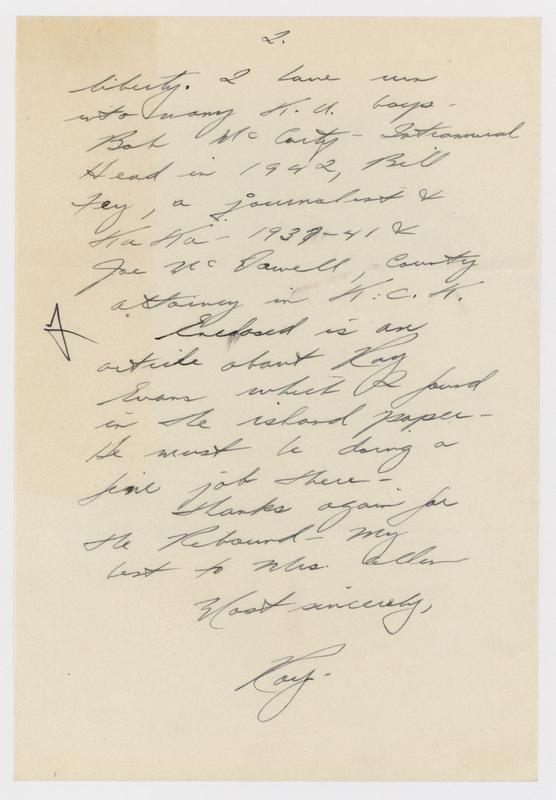 2.
liberty. I have run
into many K. U. boys -
Bob McCarty - Intramural
Head in 1942, Bill
Fey, a journalist &
Ku Ku - 1937-41 &
Joe McDowell, County
attorney in K. C. K.
Enclosed is an
article about Ray
Evans which I found
in the island paper -
He must be doing a
fine job there -
Thanks again for
the Rebound - My
best to Mrs. Allen
Most sincerely,
Roy.